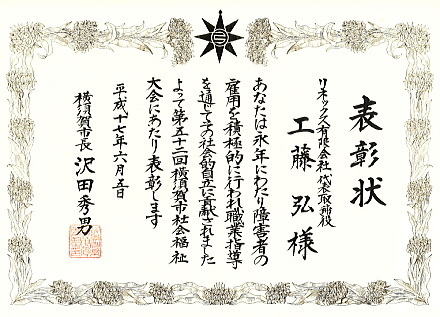 表彰状
リネックス有限会社 代表取締役
工藤 弘 様
あなたは永年にわたり障害者の
雇用を積極的に行われ職業指導
を通じてその社会的自立に貢献されました
よって第五十二回横須賀市社会福祉
大会にあたり表彰します
平成十七年六月五日
横須賀市長 沢田秀男